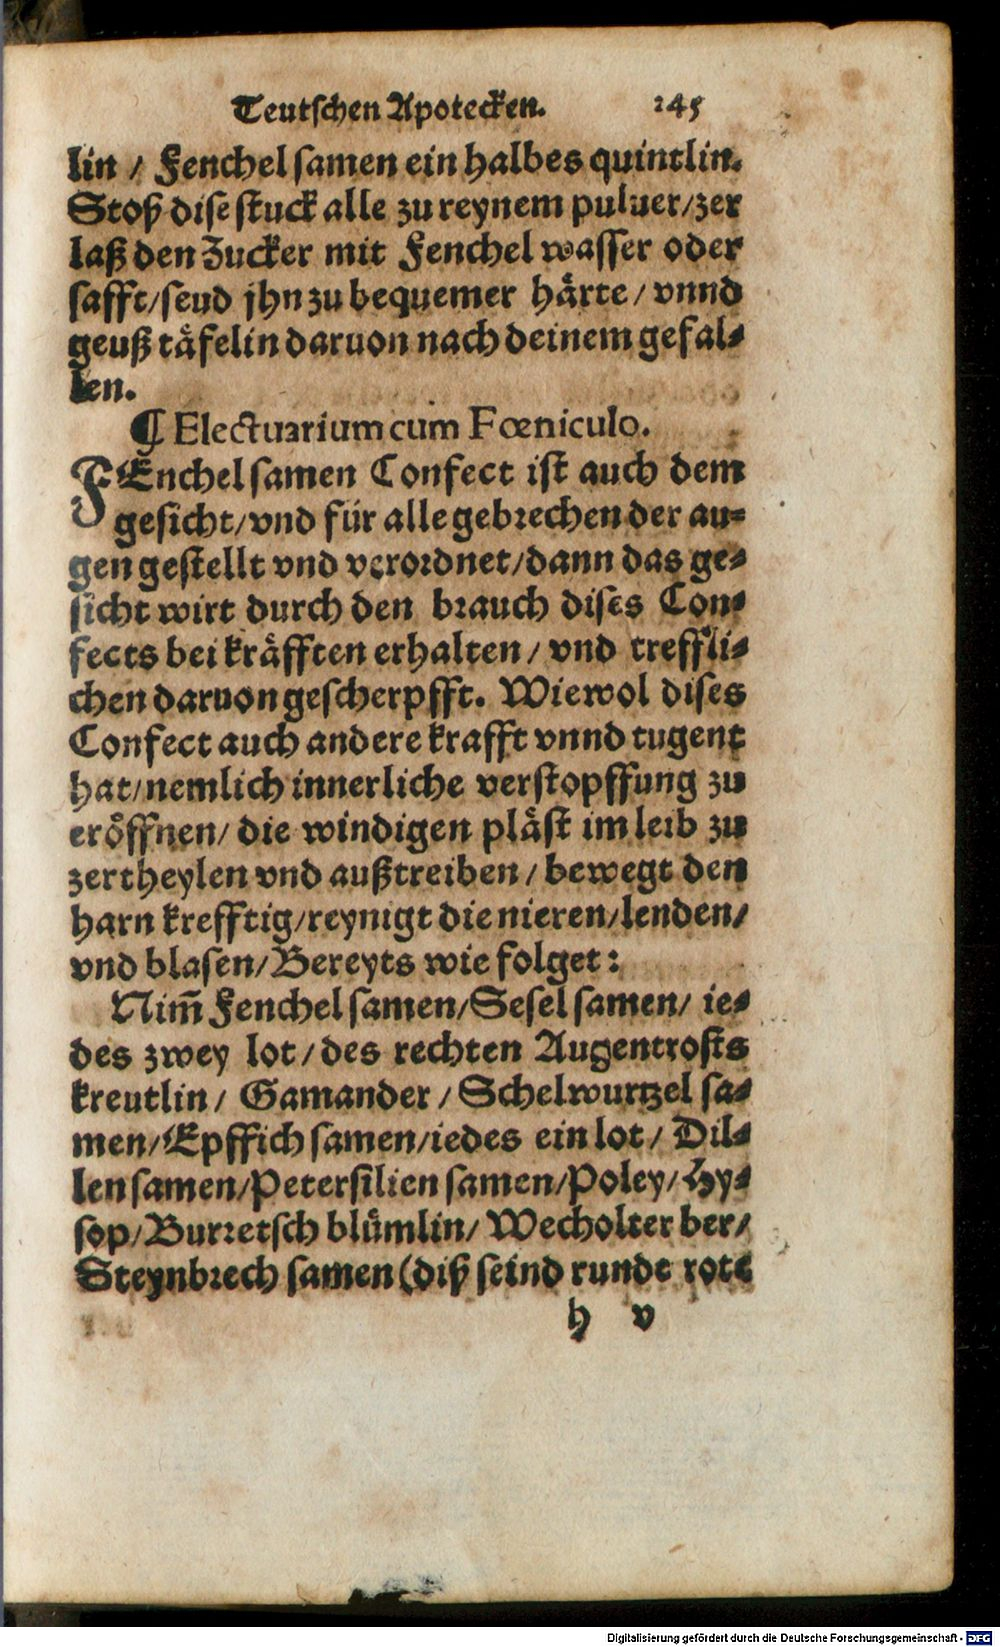 Teutschen Apotecken. 245
lin / Fenchel samen ein halbes quintlin.
Stoß dise stuck alle zu reynem puluer/zer
laß den Zucker mit Fenchel wasser oder
safft/seud jhn zu bequemer härte/ vnnd
geuß täfelin daruon nach deinem gefal⸗
len.
¶ Electuarium cum Fœniculo.
FEnchel samen Confect ist auch dem
gesicht/vnd für alle gebrechen der au⸗
gen gestellt vnd verordnet/dann das ge⸗
sicht wirt durch den brauch dises Con⸗
fects bei kräfften erhalten/ vnd treffli⸗
chen daruon gescherpfft. Wiewol dises
Confect auch andere krafft vnnd tugent
hat/nemlich innerliche verstopffung zu
eröffnen/ die windigen pläst im leib zu
zertheylen vnd außtreiben/ bewegt den
harn krefftig/reynigt die nieren/lenden/
vnd blasen/Bereyts wie folget:
Nim̃ Fenchel samen/Sesel samen/ ie⸗
des zwey lot/des rechten Augentrosts
kreutlin/ Gamander/Schelwurtzel sa⸗
men/Epffich samen/iedes ein lot/ Dil⸗
len samen/Petersilien samen/Poley/Hy⸗
sop/Burretsch blümlin/Wecholter ber/
Steynbrech samen (diß seind runde rote
h v
Digitalisierung gefördert durch die Deutsche Forschungsgemeinschaft - DFG